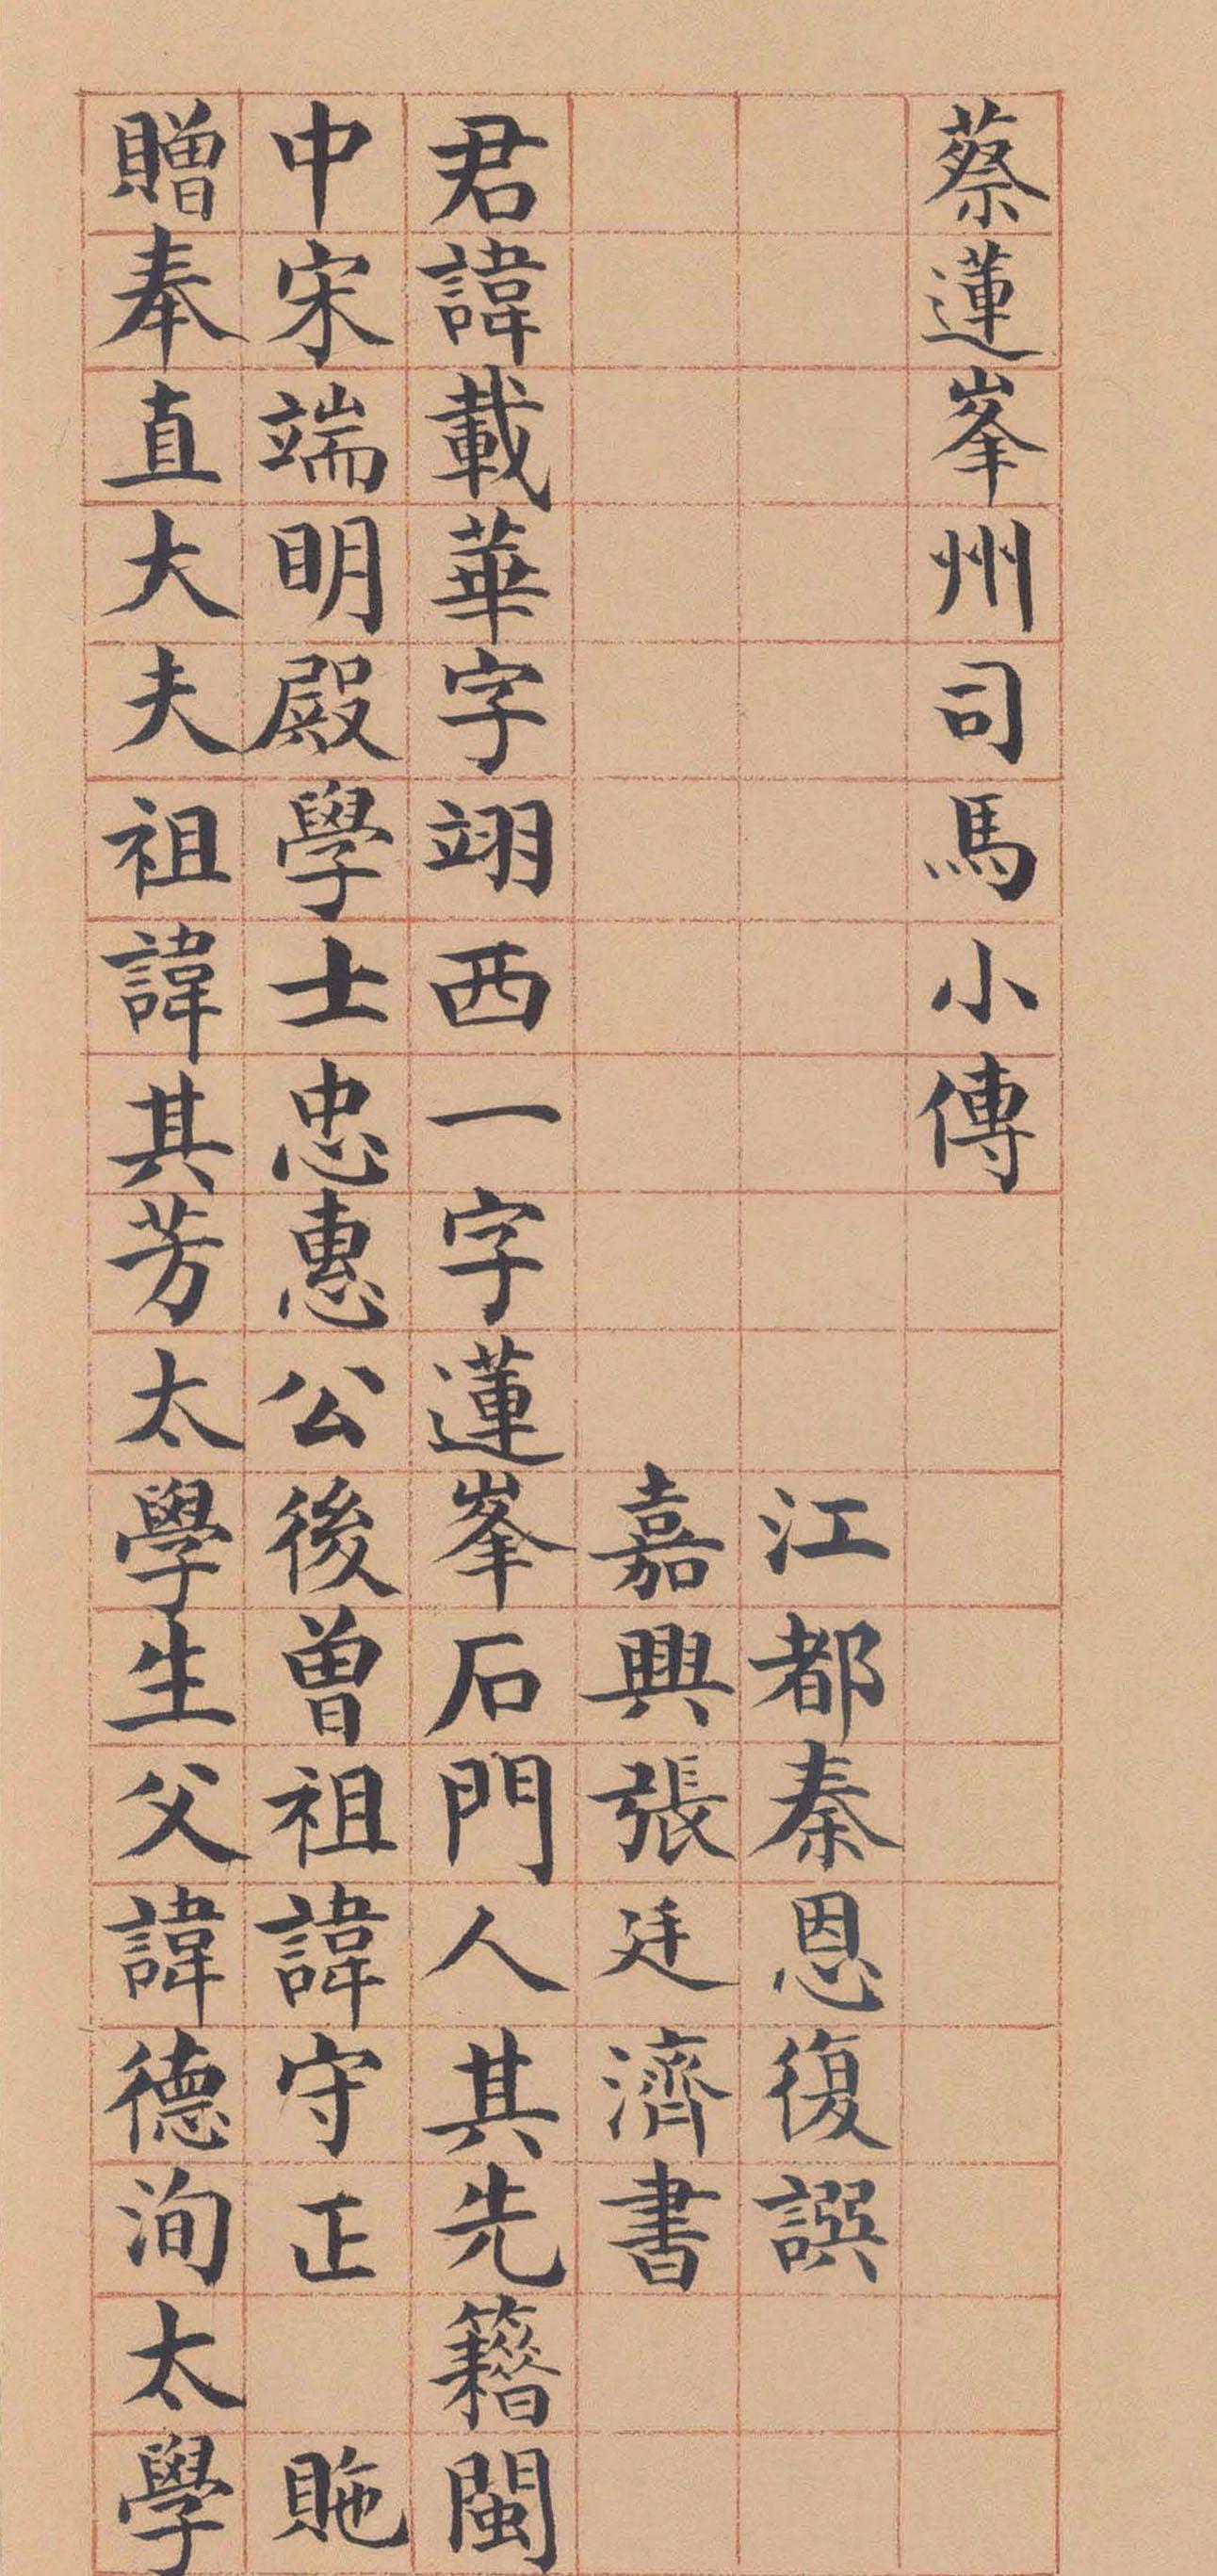 蔡蓮峯州司馬小傳
江都秦恩復譔
嘉興張廷濟書
君諱載華字翊西一字蓮峯石門人其先籍閩
中宋端明殿學士忠惠公後曾祖諱守正貤
贈奉直大夫祖諱其芳太學生父諱德洵太學